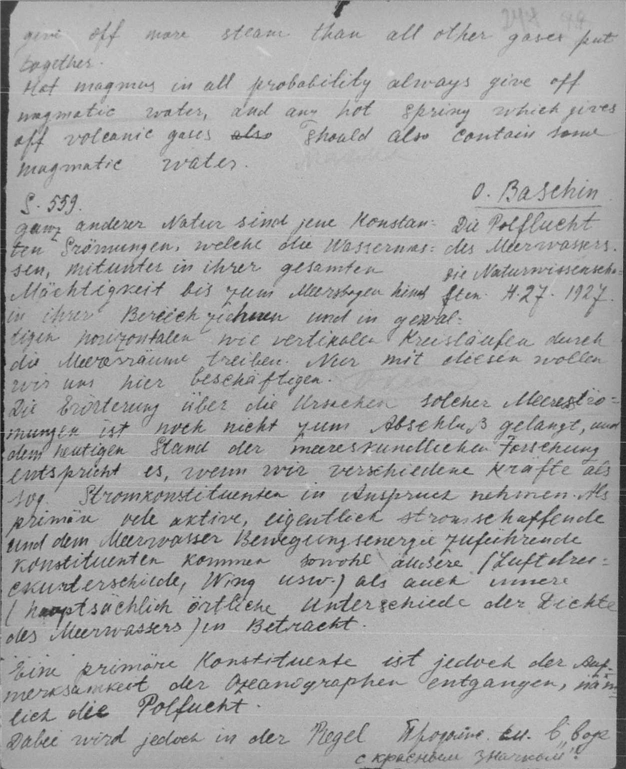 give off more steam than all other gases put
together.
Hot magmas in all probability always give off
magmatic water, and any hot spring which gives
off volcanic gases also should also contain some
magmatic water.
O. Baschin
S. 559.
ganz anderer Natur sind jene Konstan-
ten Strömungen, welche die Wassermas-
sen, mitunter in ihrer gesamten
Mächtigkeit bis zum Meeresbogen hinab
in ihrer Bereich ziehen und in gewal-
Die Polflucht
des Meerwassers.
Die Naturwissenscha-
ften H. 27. 1927.
tigen horizontalen wie vertikalen Kreisläufen durch
die Meeresräume treiben. Nur mit diesen wollen
wir uns hier beschäftigen.
Die Erörterung über die Ursachen solcher Meeresströ-
mungen ist noch nicht zum Abschluß gelangt, und
dem heutigen Stand der meereskundlichen Forschung
entspricht es, wenn wir verschiedene Kräfte als
sog. Stromkonstituenten in Anspruch nehmen. Als
primäre ode aktive, eigentlich stromschaffende
und dem Meerwasser Bewegungsenergie zuführende
Konstituenten kommen sowohl äußere (Luftdru-
ckunterschiede, Wing usw.) als auch innere
(hauptsächlich örtliche Unterschiede der Dichte
des Meerwassers) in Betracht.
Eine primäre Konstituente ist jedoch der Auf-
merksamkeit der Ozeanographen entgangen, näm-
lich die Polflucht.
Dabei wird jedoch in der Regel
с красным значком".